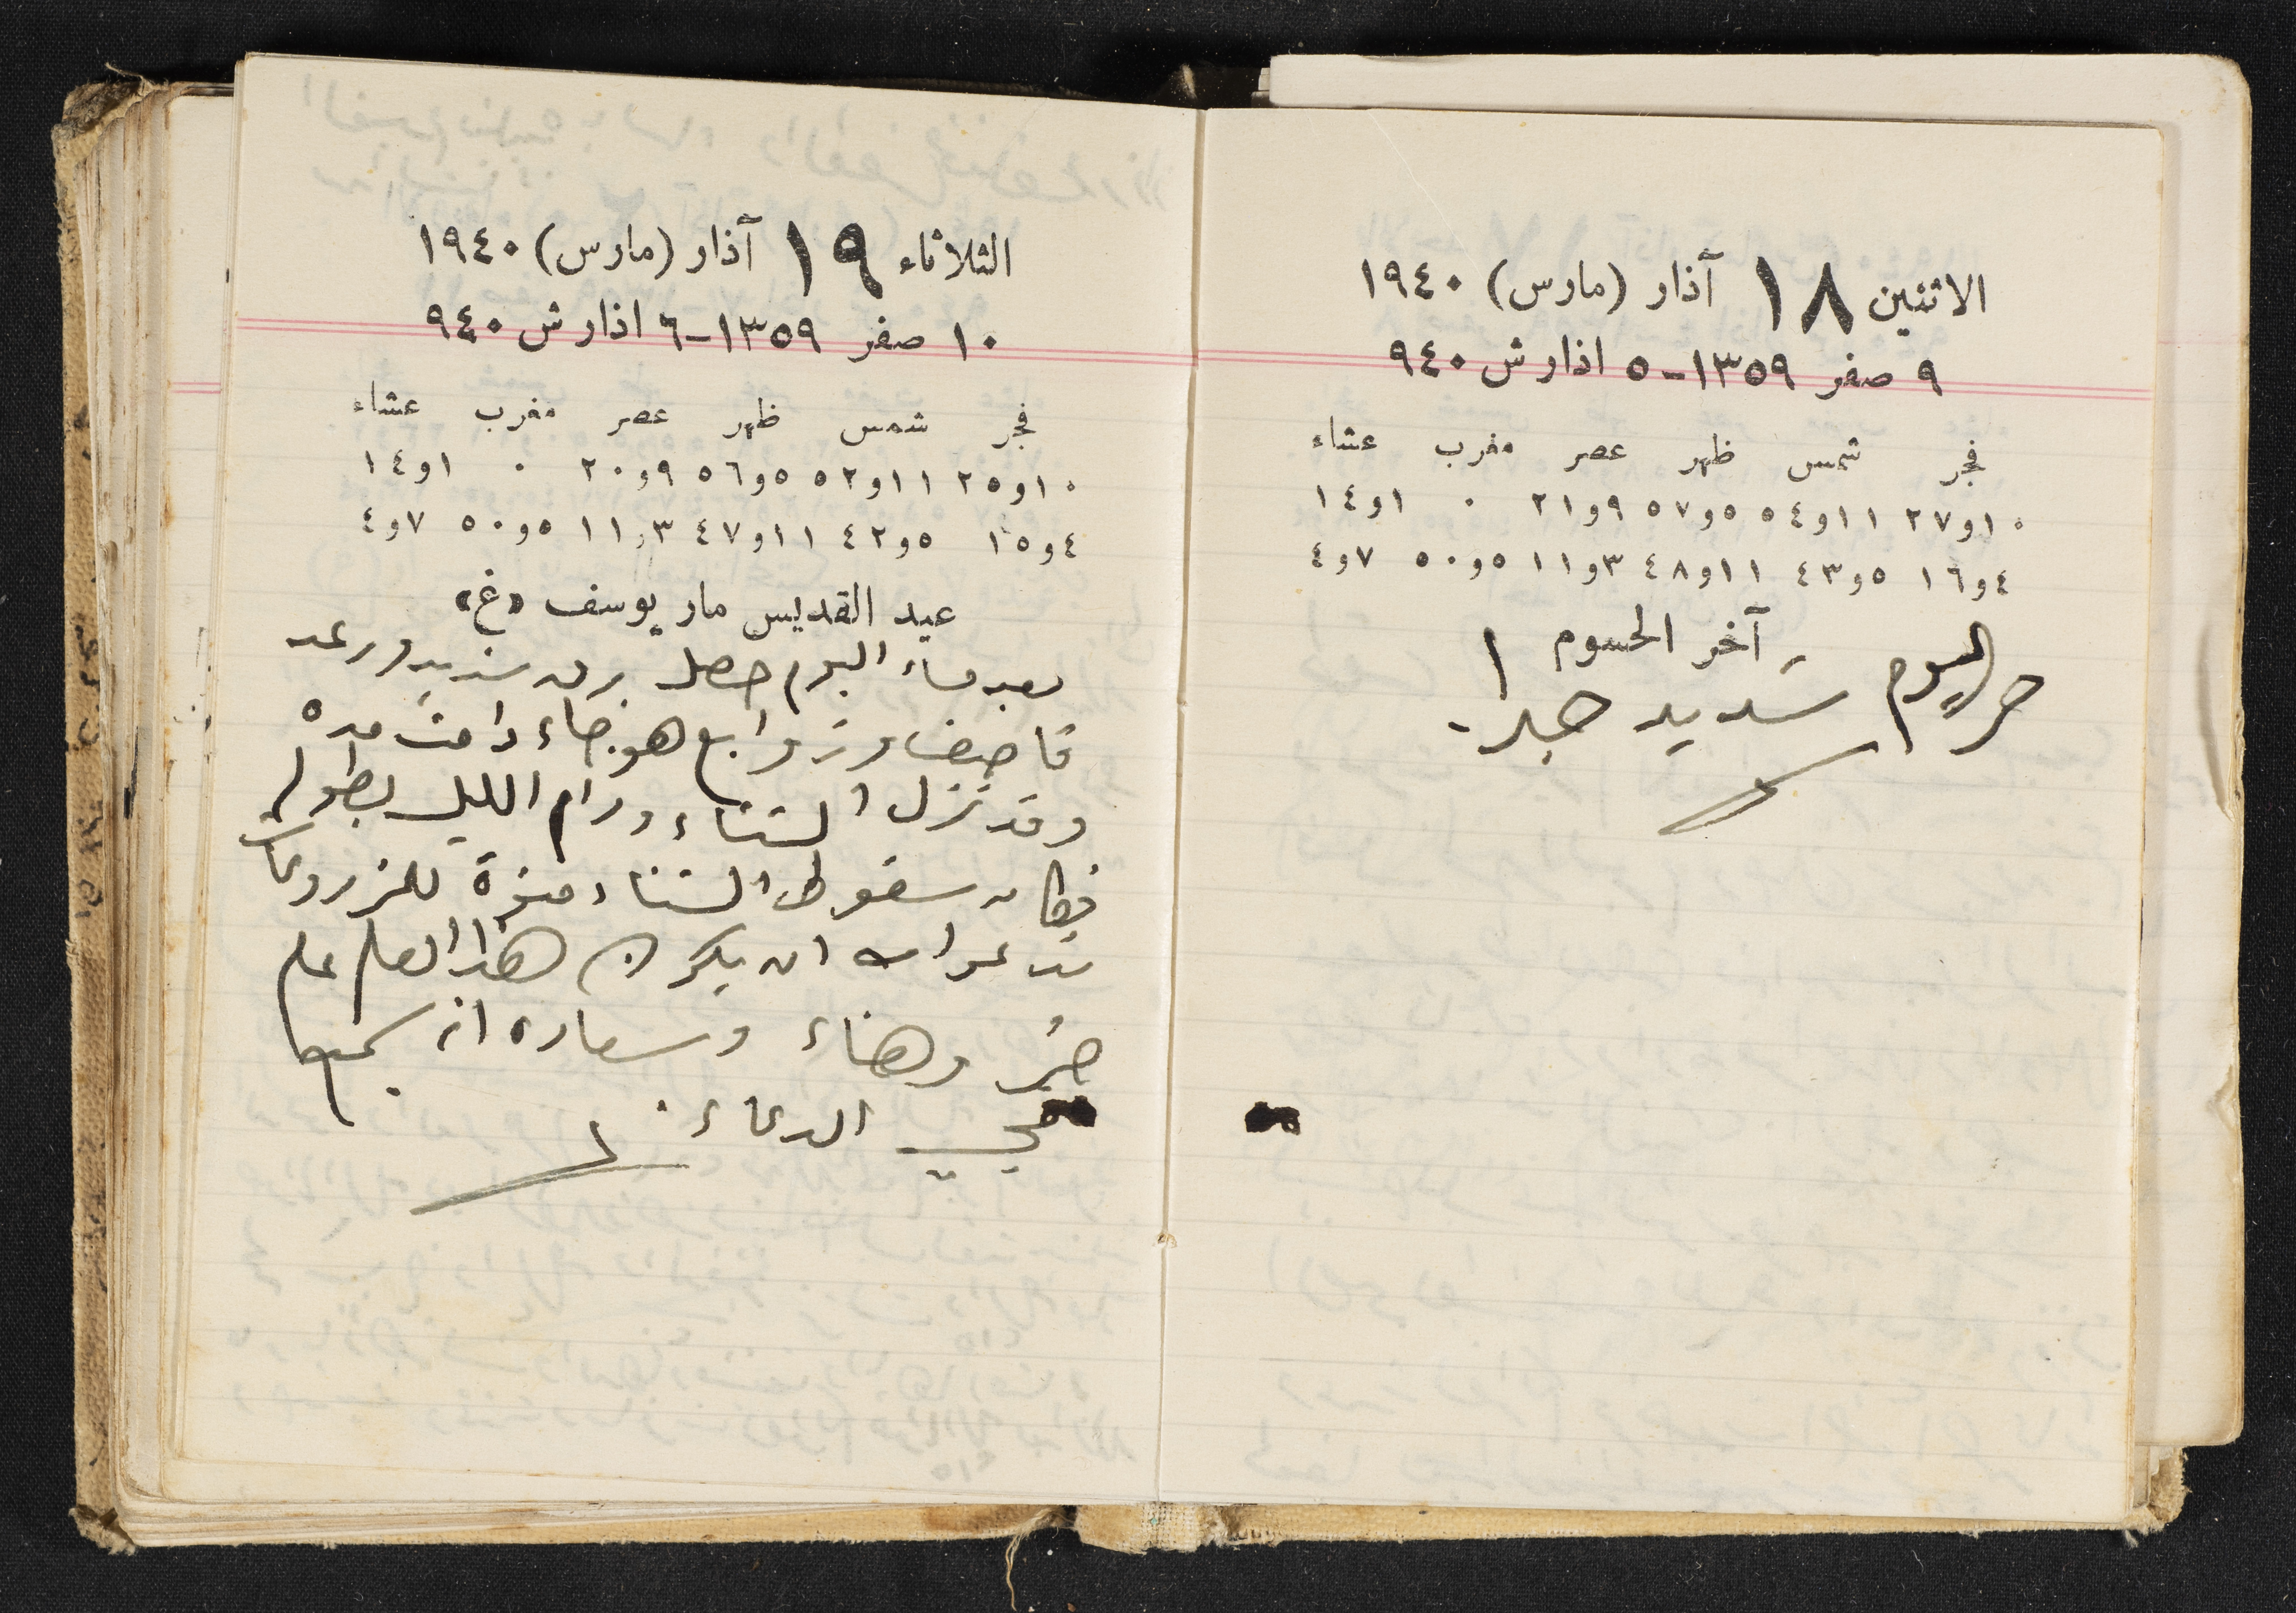 الاثنين ١٨ آذار (مارس) ١٩٤٠
٩ صفر ١٣٥٩-٥ اذار ش ٩٤٠
فجر شمس ظهر عصر مغرب عشاء
١٠و٢٧ ١١و٥٤ ٥و٥٧ ٩و٢١ ٠ ١و١٤
٤و١٦ ٥و٤٣ ١١و٤٨ ٣و١١ ٥و٥٠ ٧و٤
آخر الحسوم
حر اليوم شديد جدا
الثلاثاء ١٩ آذار (مارس) ١٩٤٠
١٠ صفر ١٣٥٩-٦ اذار ش ٩٤٠
فجر شمس ظهر عصر مغرب عشاء
١٠و٢٥ ١١و٥٢ ٥و٥٦ ٩و٢٠ ٠ ١و١٤
٤و١٥ ٥و٤٢ ١١و٤٧ ٣و١١ ٥و٥٠ ٧و٤
عيد القديس مار يوسف «غ»
بعد مساء اليوم حصل برق شديد ورعد
قاصف وزوابع هوجاء دامت مده
وقد نزل الشتاء ودام الليل بطوله
فكان سقوط الشتاء للمزروعات
ندعو الله ان يكون هذا العام عام
خير وهناء وسعاده انه سميع
مجيب الدعاء